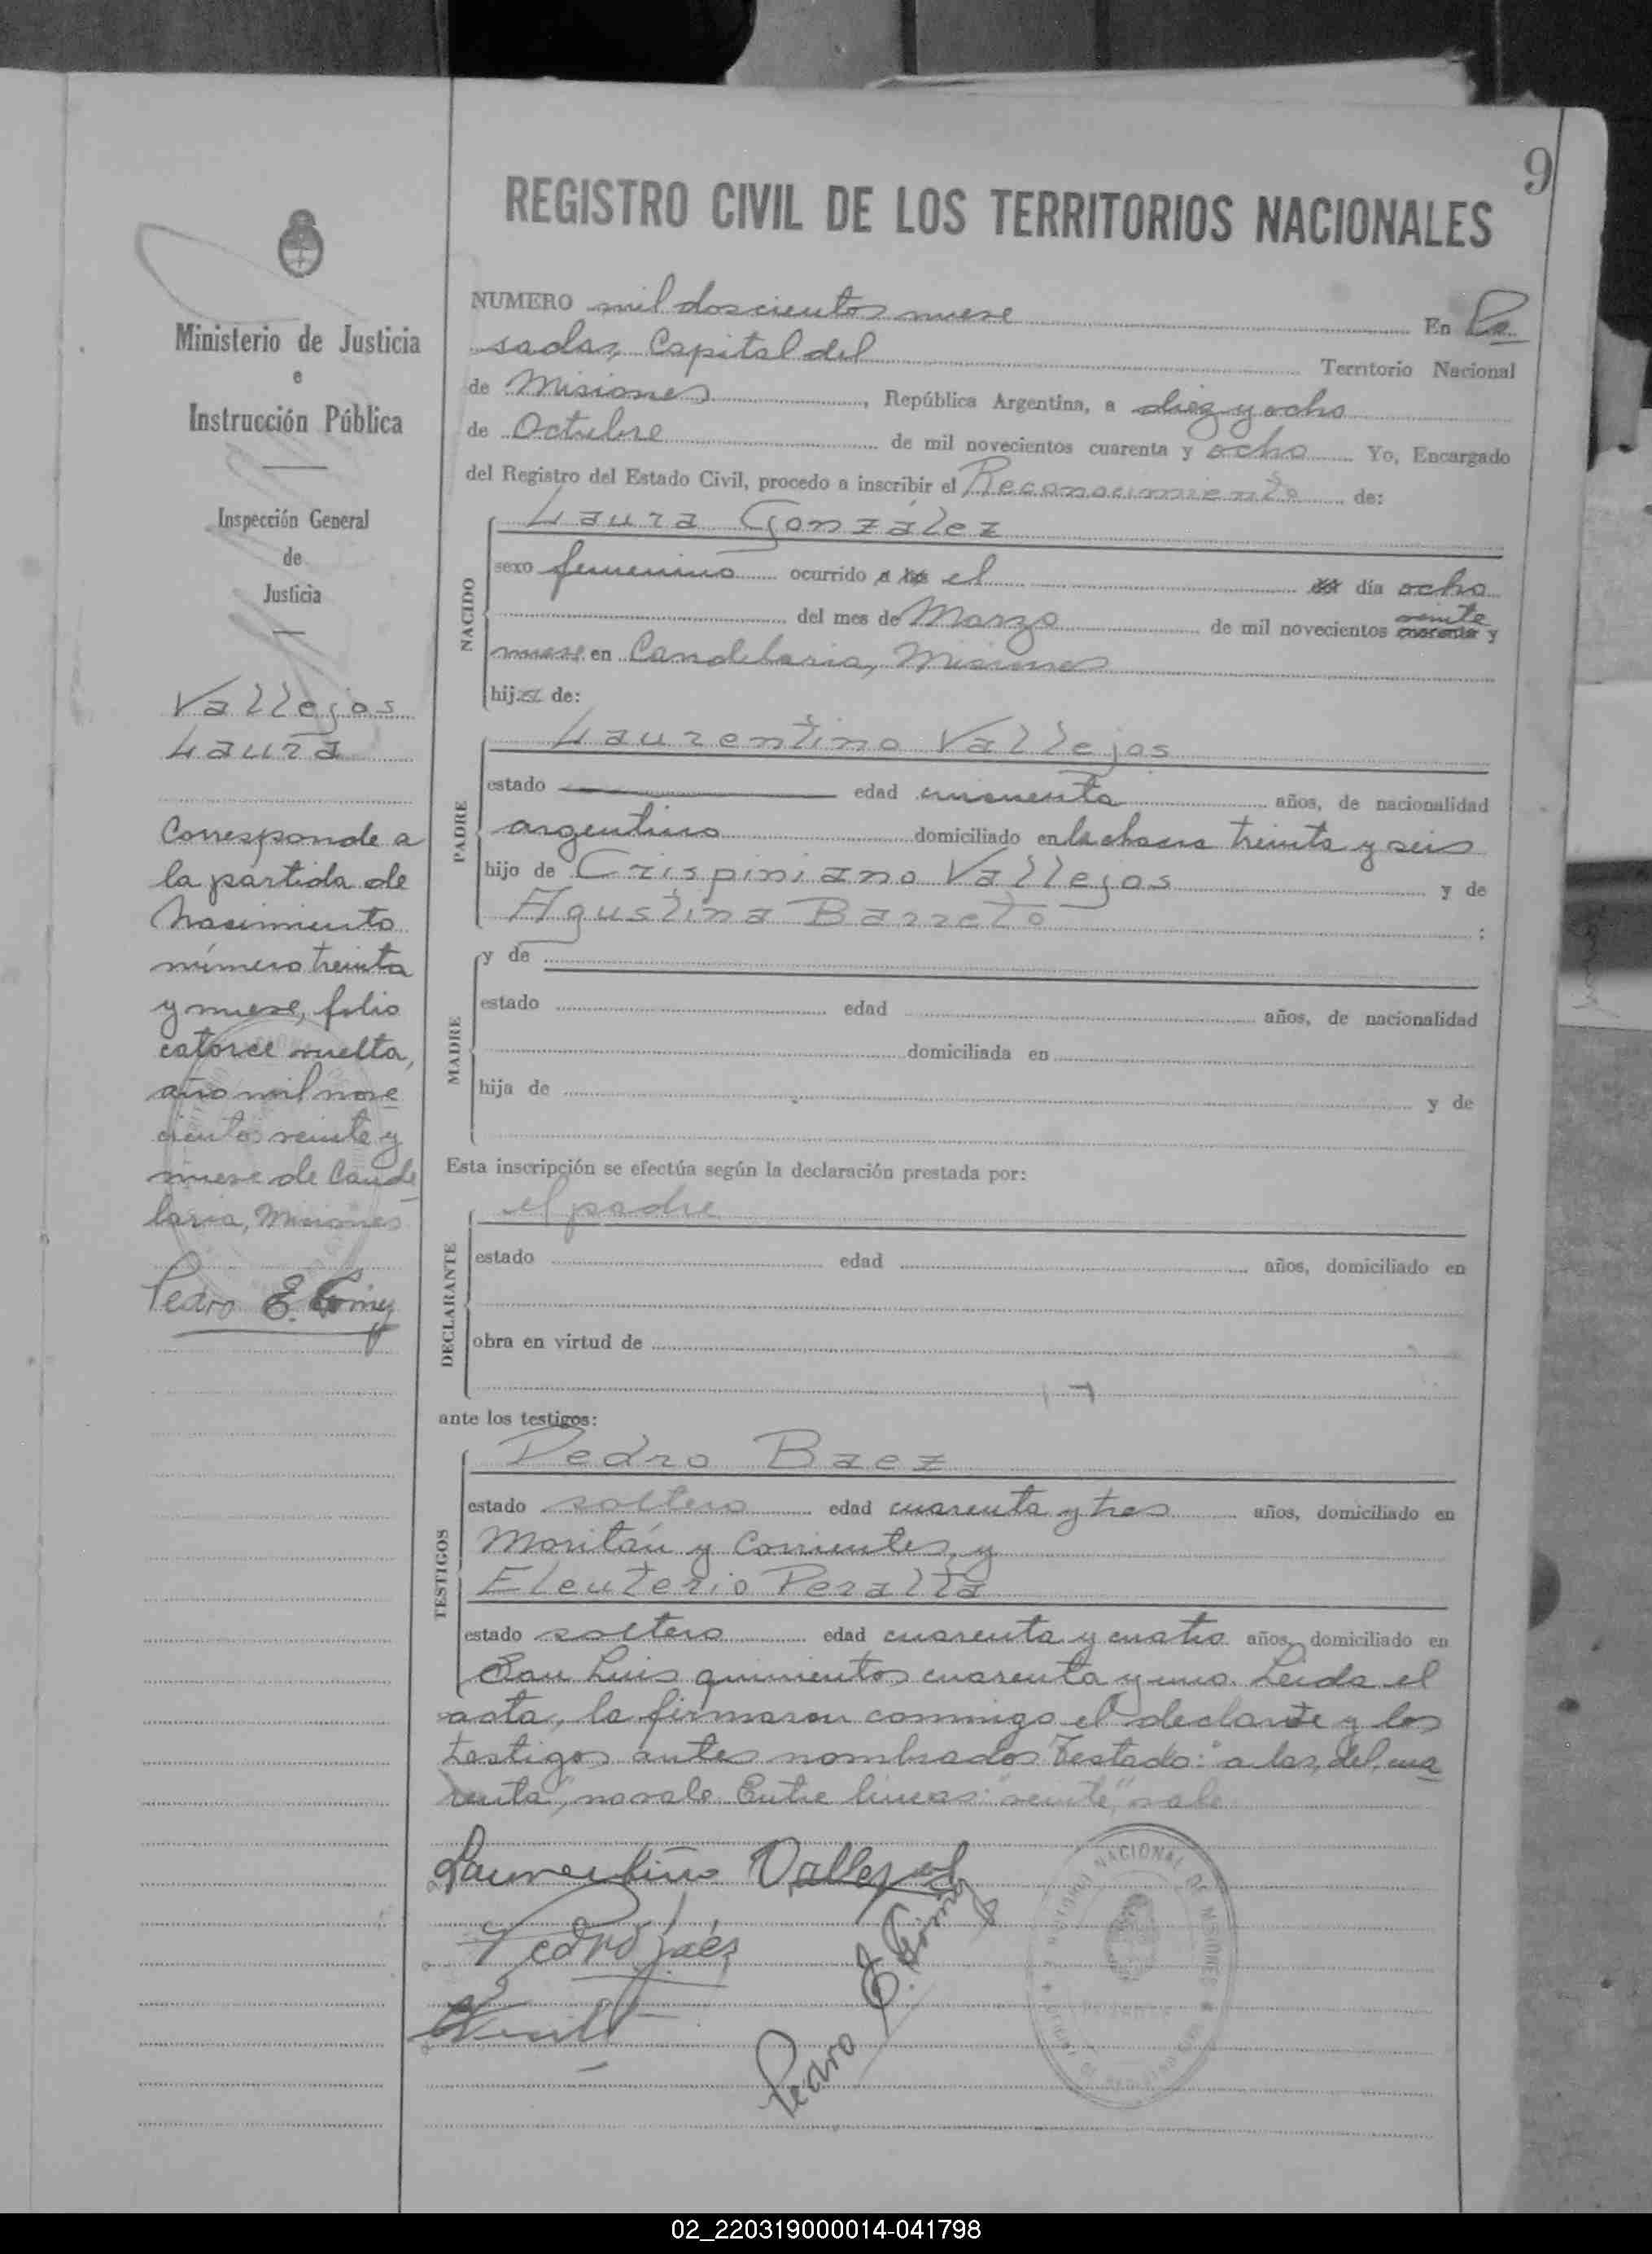 9
REGISTRO CIVIL DE LOS TERRITORIOS NACIONALES
Ministerio de Justicia
e
Instrucción Pública
Inspección General
de
Justicia
Vallejos
Laura
Corresponde a
la partida de
Nacimiento
número treinta
y nueve, folio
catorce vuelta,
año mil nove
cientos veinte y
nueve de Cande
laria, Misiones
Pedro E. Gómez
NUMERO mil doscientos nueve En Po
sadas, Capital del Territorio Nacional
de Misiones, República Argentina, a diez y ocho
de Octubre de mil novecientos cuarenta y ocho Yo, Encargado
del Registro del Estado Civil, procedo a inscribir el Reconocimiento de:
NACIDO
Laura González
sexo femenino ocurrido a las el del día ocho
veinte
del mes de Marzo de mil novecientos cuarenta y
nueve en Candelaria, Misiones
hija de:
PADRE
Laurentino Vallejos
estado edad cincuenta años, de nacionalidad
argentino domiciliado en la chacra treinta y seis
hijo de Crispiniano Vallejos y de
Agustina Barreto ;
MADRE
y de
estado edad años, de nacionalidad
domiciliada en
hija de y de
Esta inscripción se efectúa según la declaración prestada por:
DECLARANTE
el padre
estado edad años, domiciliado en
obra en virtud de
ante los testigos:
TESTIGOS
Pedro Baez
estado soltero edad cuarenta y tres años, domiciliado en
Moritán y Corrientes, y
Eleuterio Peralta
estado soltero edad cuarenta y cuatro años, domiciliado en
San Luis quinientos cuarenta y uno. Leída el
acta, la firmaron conmigo el declarante y los
testigos antes nombrados Testado: "a las, del, cua
renta", no vale. Entre líneas: "veinte", vale
Laurentino Vallejos
Pedro Báez
Pedro E. Gómez
NACIONAL DE MISIONES
02_220319000014-041798